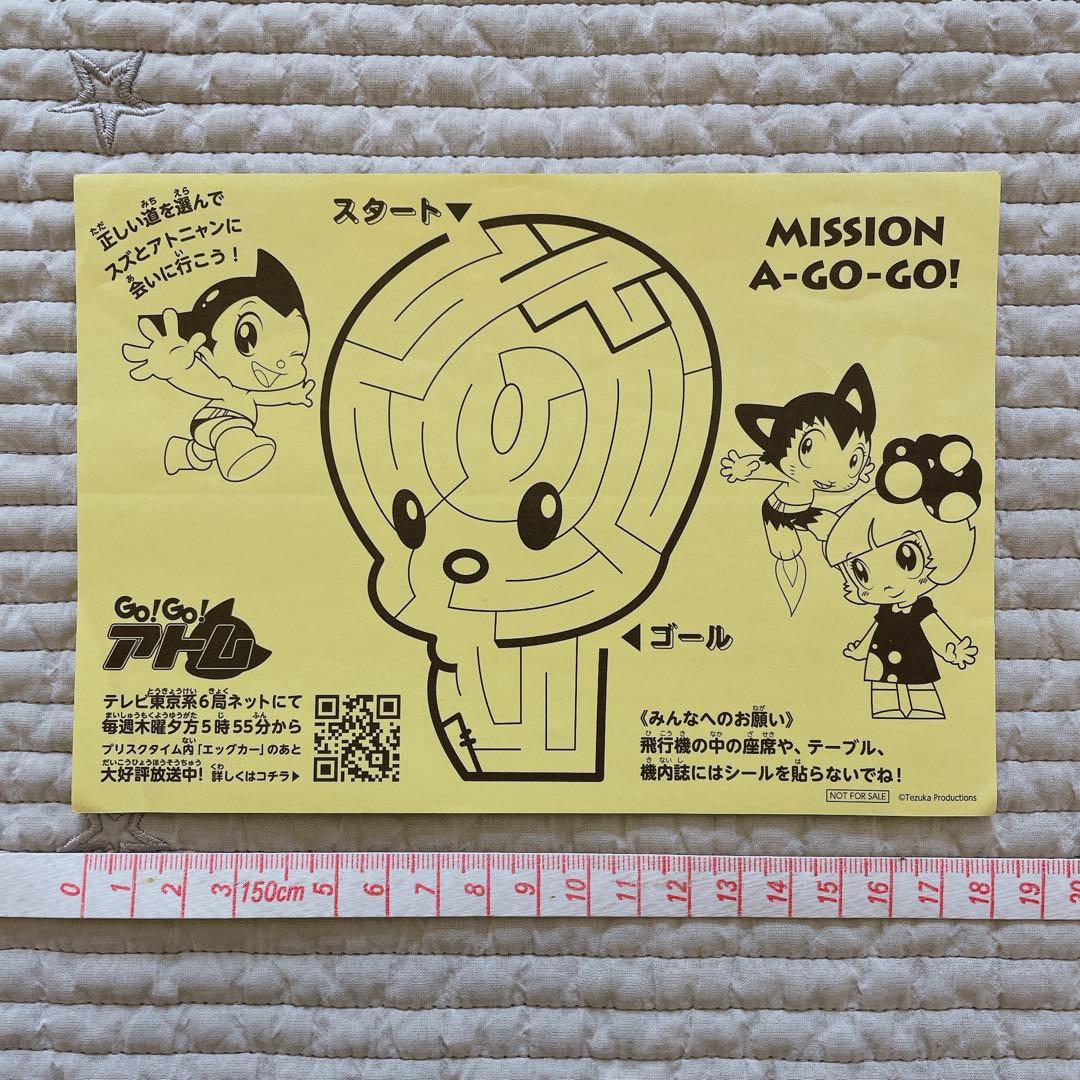 正しい道を選んで
スズとアトニャンに
会いに行こう！
スタート▼
MISSION
A-GO-GO!
◀ゴール
GO!GO!
アトム
テレビ東京系6局ネットにて
毎週木曜夕方5時55分から
プリスクタイム内「エッグカー」のあと
大好評放送中! 詳しくはコチラ▶
《みんなへのお願い》
飛行機の中の座席や、テーブル、
機内誌にはシールを貼らないでね！
NOT FOR SALE ©Tezuka Productions
0 1 2 3 150cm 5 6 7 8 9 10 11 12 13 14 15 16 17 18 19 20